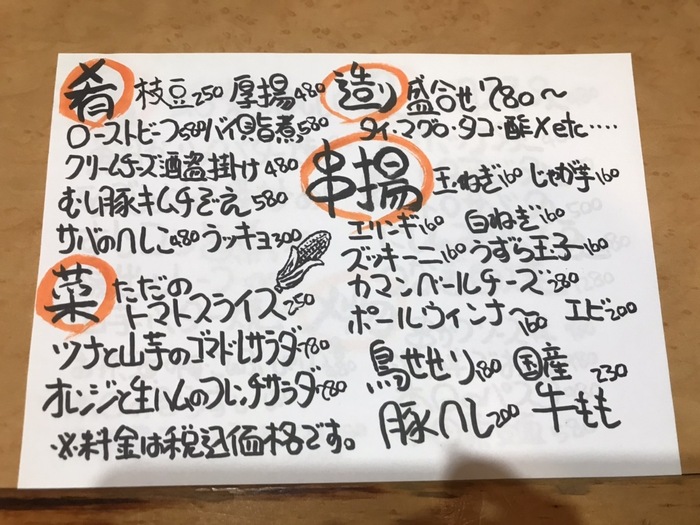 肴 枝豆250 厚揚480
ローストビーフ580バイ貝旨煮580
クリームチーズ酒盗掛け480
むし豚キムチぞえ580
サバのへしこ480ラッキョ300
菜 ただの
トマトスライス250
ツナと山芋のゴマドレサラダ780
オレンジと生ハムのフレンチサラダ780
※料金は税込価格です。
造り 盛合せ780〜
タイ・マグロ・タコ・酢〆etc‥‥
串揚 玉ねぎ160 じゃが芋160
エリンギ160 白ねぎ160
ズッキーニ160うずら玉子160
カマンベールチーズ280
ポールウィンナー160 エビ200
鳥せせり180 国産 230
豚ヘレ200 牛もも